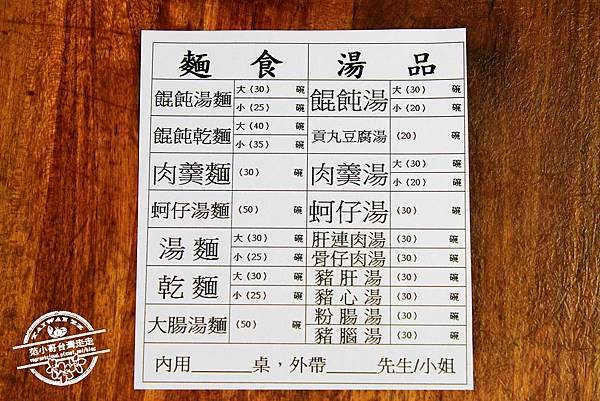 麵食 湯品
餛飩湯麵 大(30) 碗 小(25) 碗 餛飩湯 大(30) 碗 小(20) 碗
餛飩乾麵 大(40) 碗 小(35) 碗 貢丸豆腐湯 (20) 碗
肉羹麵 (30) 碗 肉羹湯 大(30) 碗 小(20) 碗
蚵仔湯麵 (50) 碗 蚵仔湯 (30) 碗
湯麵 大(30) 碗 小(25) 碗 肝連肉湯 (30) 碗
骨仔肉湯 (30) 碗
乾麵 大(30) 碗 小(25) 碗 豬肝湯 (30) 碗
豬心湯 (30) 碗
大腸湯麵 (50) 碗 粉腸湯 (30) 碗
豬腦湯 (30) 碗
內用______桌，外帶_____先生/小姐
TAIWAN ZZ
范小哥台灣走走